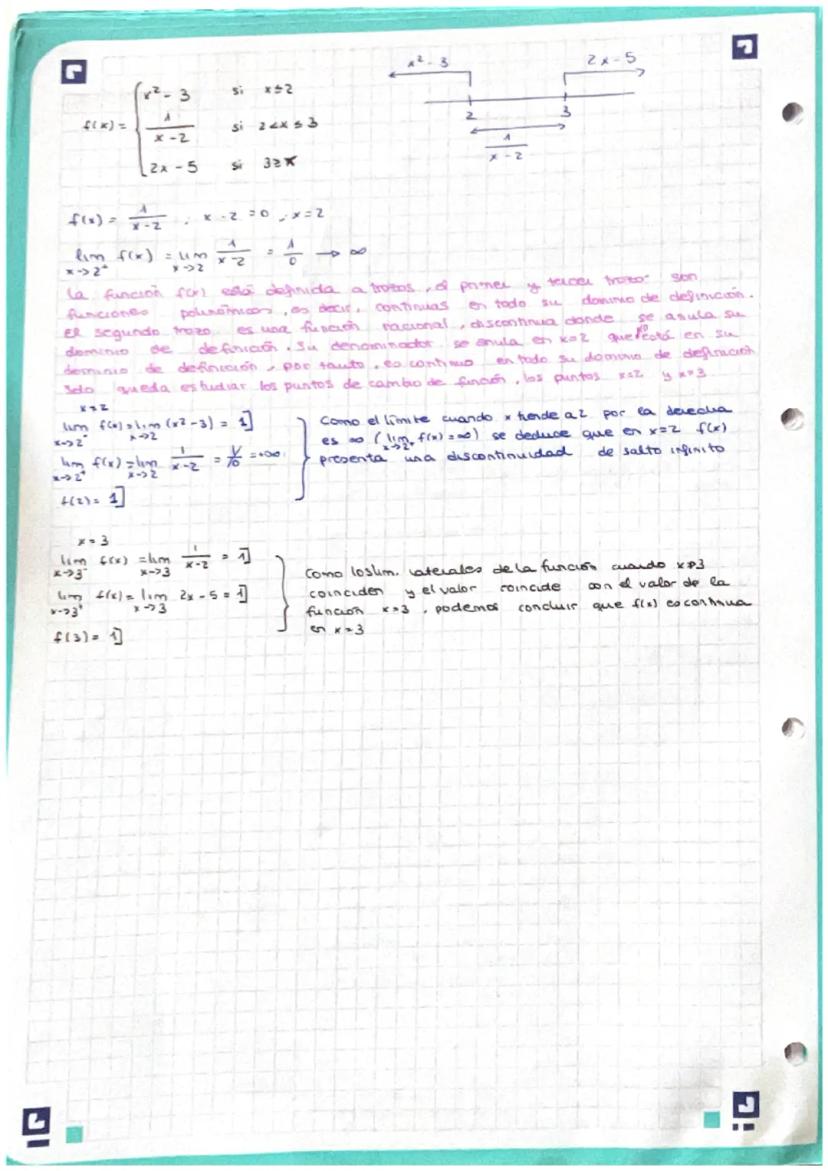 x² - 3
2x - 5
2
3
1/(x - 2)
f(x) = { x² - 3 si x ≤ 2
1/(x - 2) si 2 < x ≤ 3
2x - 5 si 3 ≥ x
f(x) = 1/(x - 2) ; x - 2 = 0 ; x = 2
lim x->2⁺ f(x) = lim x->2 1/(x - 2) = 1/0 → ∞
La función f(x) está definida a trozos, el primer y tercer trozo son
funciones polinómicas, es decir, continuas en todo su dominio de definición.
El segundo trozo es una función racional, discontinua donde se anula su
dominio de definición. Su denominador se anula en x=2 que no está en su
dominio de definición, por tanto, es continuo en todo su dominio de definición
Solo queda estudiar los puntos de cambio de función, los puntos x=2 y x=3
x=2
lim x->2⁻ f(x) = lim x->2 (x² - 3) = 1]
lim x->2⁺ f(x) = lim x->2 1/(x - 2) = 1/0 = +∞
f(2) = 1]
Como el límite cuando x tiende a 2 por la derecha
es ∞ (lim x->2⁺ f(x) = ∞) se deduce que en x=2 f(x)
presenta una discontinuidad de salto infinito
x = 3
lim x->3⁻ f(x) = lim x->3 1/(x - 2) = 1]
lim x->3⁺ f(x) = lim x->3 2x - 5 = 1]
f(3) = 1]
Como los lim. laterales de la función cuando x→3
coinciden y el valor coincide con el valor de la
función x=3, podemos concluir que f(x) es continua
en x=3